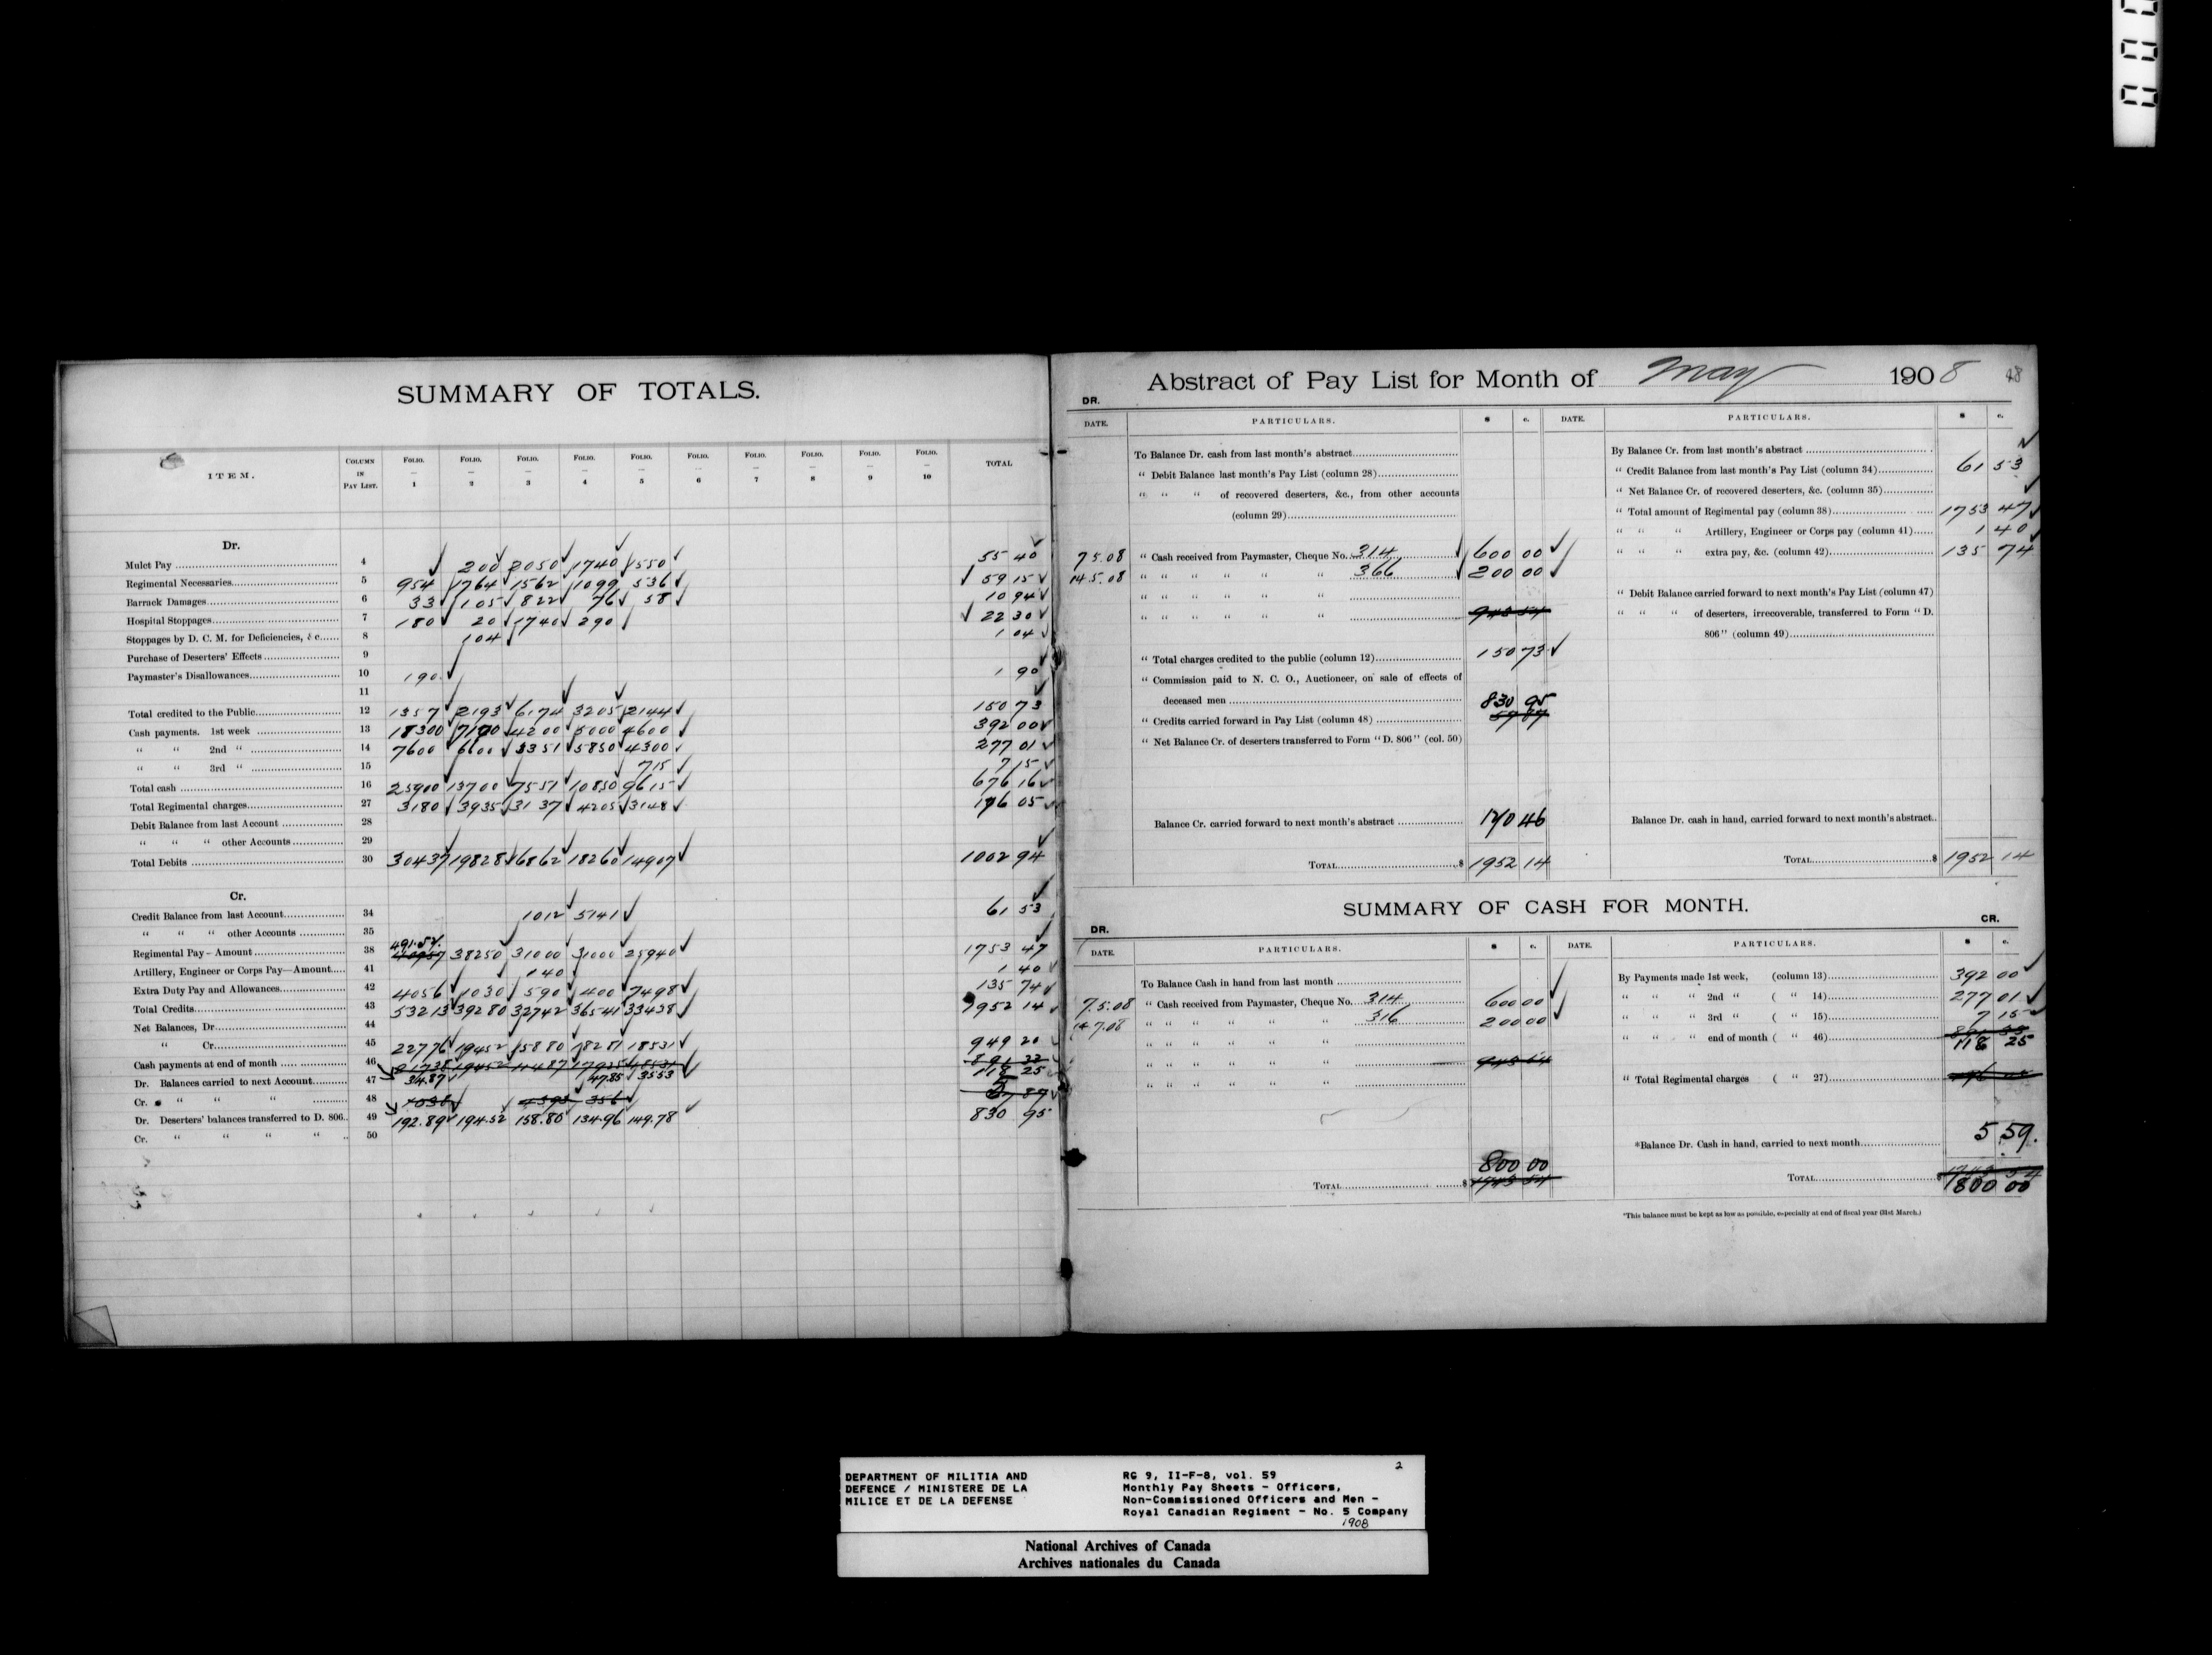 SUMMARY OF TOTALS.
ITEM. COLUMN IN PAY LIST. FOLIO. 1 FOLIO. 2 FOLIO. 3 FOLIO. 4 FOLIO. 5 FOLIO. 6 FOLIO. 7 FOLIO. 8 FOLIO. 9 FOLIO. 10 TOTAL
Dr.
Mulct Pay 4 200 2050 1740 1550 55 40
Regimental Necessaries 5 954 1764 1562 1099 536 59 15
Barrack Damages 6 33 105 822 76 58 10 94
Hospital Stoppages 7 180 20 1740 290 22 30
Stoppages by D. C. M. for Deficiencies, &c 8 104 1 04
Purchase of Deserters' Effects 9
Paymaster's Disallowances 10 190 1 90
11
Total credited to the Public 12 1357 2193 6174 3205 2144 150 73
Cash payments. 1st week 13 18300 7100 4200 5000 4600 392 00
" " 2nd " 14 7600 6600 3351 5850 4300 277 01
" " 3rd " 15 715 7 15
Total cash 16 25900 13700 7551 10850 9615 676 16
Total Regimental charges 27 3180 3935 3137 4205 3148 176 05
Debit Balance from last Account 28
" " " other Accounts 29
Total Debits 30 30437 19828 16862 18260 14907 1002 94
Cr.
Credit Balance from last Account 34 1012 5141 61 53
" " " other Accounts 35
491.57
Regimental Pay - Amount 38 38250 31000 31000 25940 1753 47
Artillery, Engineer or Corps Pay—Amount 41 140 1 40
Extra Duty Pay and Allowances 42 4056 1030 590 400 7498 135 74
Total Credits 43 53213 39280 32742 36541 33438 1952 14
Net Balances, Dr 44
" Cr 45 22776 19452 15880 18281 18531 949 20
Cash payments at end of month 46 21738 19452 11487 17925 18531 891 33
Dr. Balances carried to next Account 47 34.87 47.85 3553 118 25
Cr. " " " 48 1038 4393 356 57 87
Dr. Deserters' balances transferred to D. 806 49 192.89 194.52 158.80 134.96 149.78 830 95
Cr. " " " " 50
Abstract of Pay List for Month of May 1908 48
DR.
DATE. PARTICULARS. $ c. DATE. PARTICULARS. $ c.
To Balance Dr. cash from last month's abstract
" Debit Balance last month's Pay List (column 28)
" " " of recovered deserters, &c., from other accounts
(column 29)
7 5.08 " Cash received from Paymaster, Cheque No. 314 600 00
14.5.08 " " " " " " 366 200 00
" " " " " "
" " " " " " 943 54
" Total charges credited to the public (column 12) 150 73
" Commission paid to N. C. O., Auctioneer, on sale of effects of
deceased men 830 95
" Credits carried forward in Pay List (column 48) 57 87
" Net Balance Cr. of deserters transferred to Form "D. 806" (col. 50)
Balance Cr. carried forward to next month's abstract 170 46
TOTAL $ 1952 14
By Balance Cr. from last month's abstract
" Credit Balance from last month's Pay List (column 34) 61 53
" Net Balance Cr. of recovered deserters, &c. (column 35)
" Total amount of Regimental pay (column 38) 1753 47
" " " Artillery, Engineer or Corps pay (column 41) 1 40
" " " extra pay, &c. (column 42) 135 74
" Debit Balance carried forward to next month's Pay List (column 47)
" " " of deserters, irrecoverable, transferred to Form "D.
806" (column 49)
Balance Dr. cash in hand, carried forward to next month's abstract
TOTAL $ 1952 14
SUMMARY OF CASH FOR MONTH.
DR. CR.
DATE. PARTICULARS. $ c. DATE. PARTICULARS. $ c.
To Balance Cash in hand from last month
7.5.08 " Cash received from Paymaster, Cheque No. 314 600 00
14 7.08 " " " " " " 316 200 00
" " " " " "
" " " " " "
" " " " " "
800 00
TOTAL $ 1743 54
By Payments made 1st week, (column 13) 392 00
" " " 2nd " ( " 14) 277 01
" " " 3rd " ( " 15) 7 15
" " " end of month ( " 46) 118 25
" Total Regimental charges ( " 27)
*Balance Dr. Cash in hand, carried to next month 5 59.
TOTAL $ 1743 54
800 00
*This balance must be kept as low as possible, especially at end of fiscal year (31st March.)
DEPARTMENT OF MILITIA AND
DEFENCE / MINISTERE DE LA
MILICE ET DE LA DEFENSE
2
RG 9, II-F-8, vol. 59
Monthly Pay Sheets - Officers,
Non-Commissioned Officers and Men -
Royal Canadian Regiment - No. 5 Company
1908
National Archives of Canada
Archives nationales du Canada